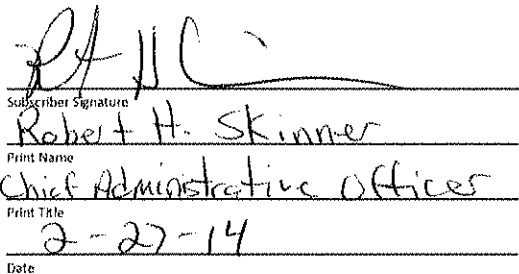 Subscriber Signature
Robert H. Skinner
Print Name
Chief Administrative Officer
Print Title
2-27-14
Date